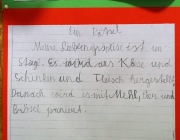 Ein Rätsel
Meine Lieblingsspeise ist in
Es wird aus Käse und
Schinken und Fleisch hergestellt
Danach wird es mit Mehl, Eier und
Brösel paniert.